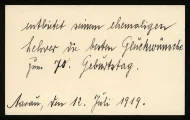 entbietet seinem ehemaligen
Lehrer die besten Glückwünsche
zum 70. Geburtstag.
Aarau, den 12. Juli 1919.